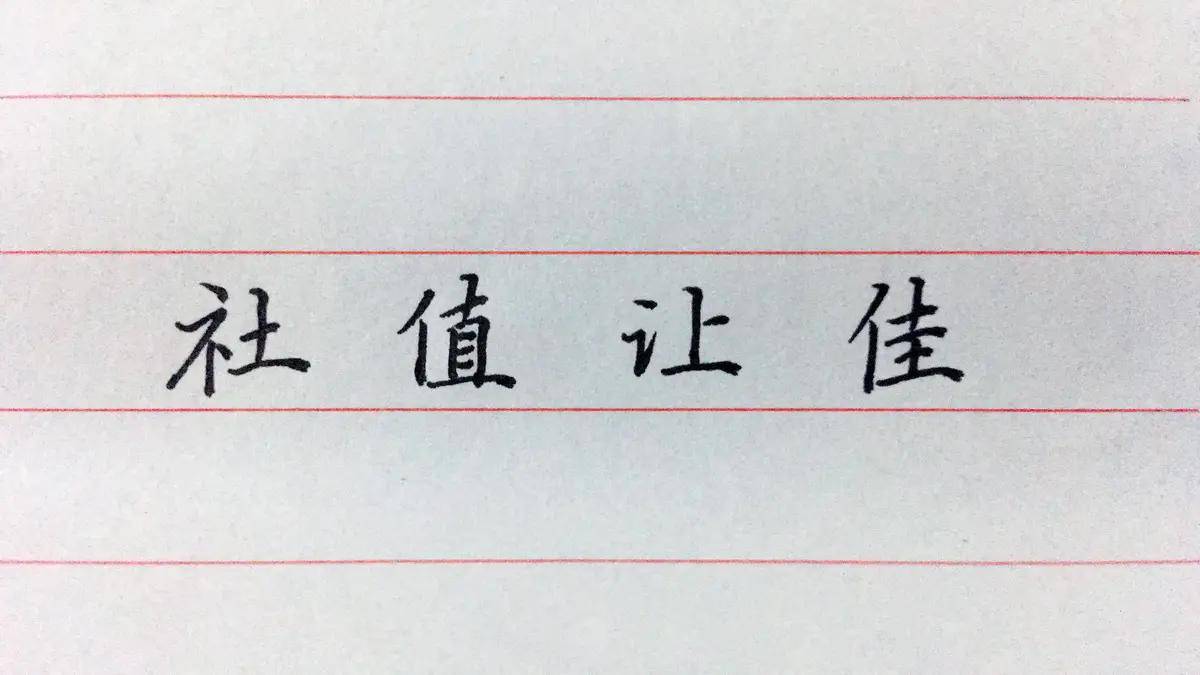 社 值 让 佳